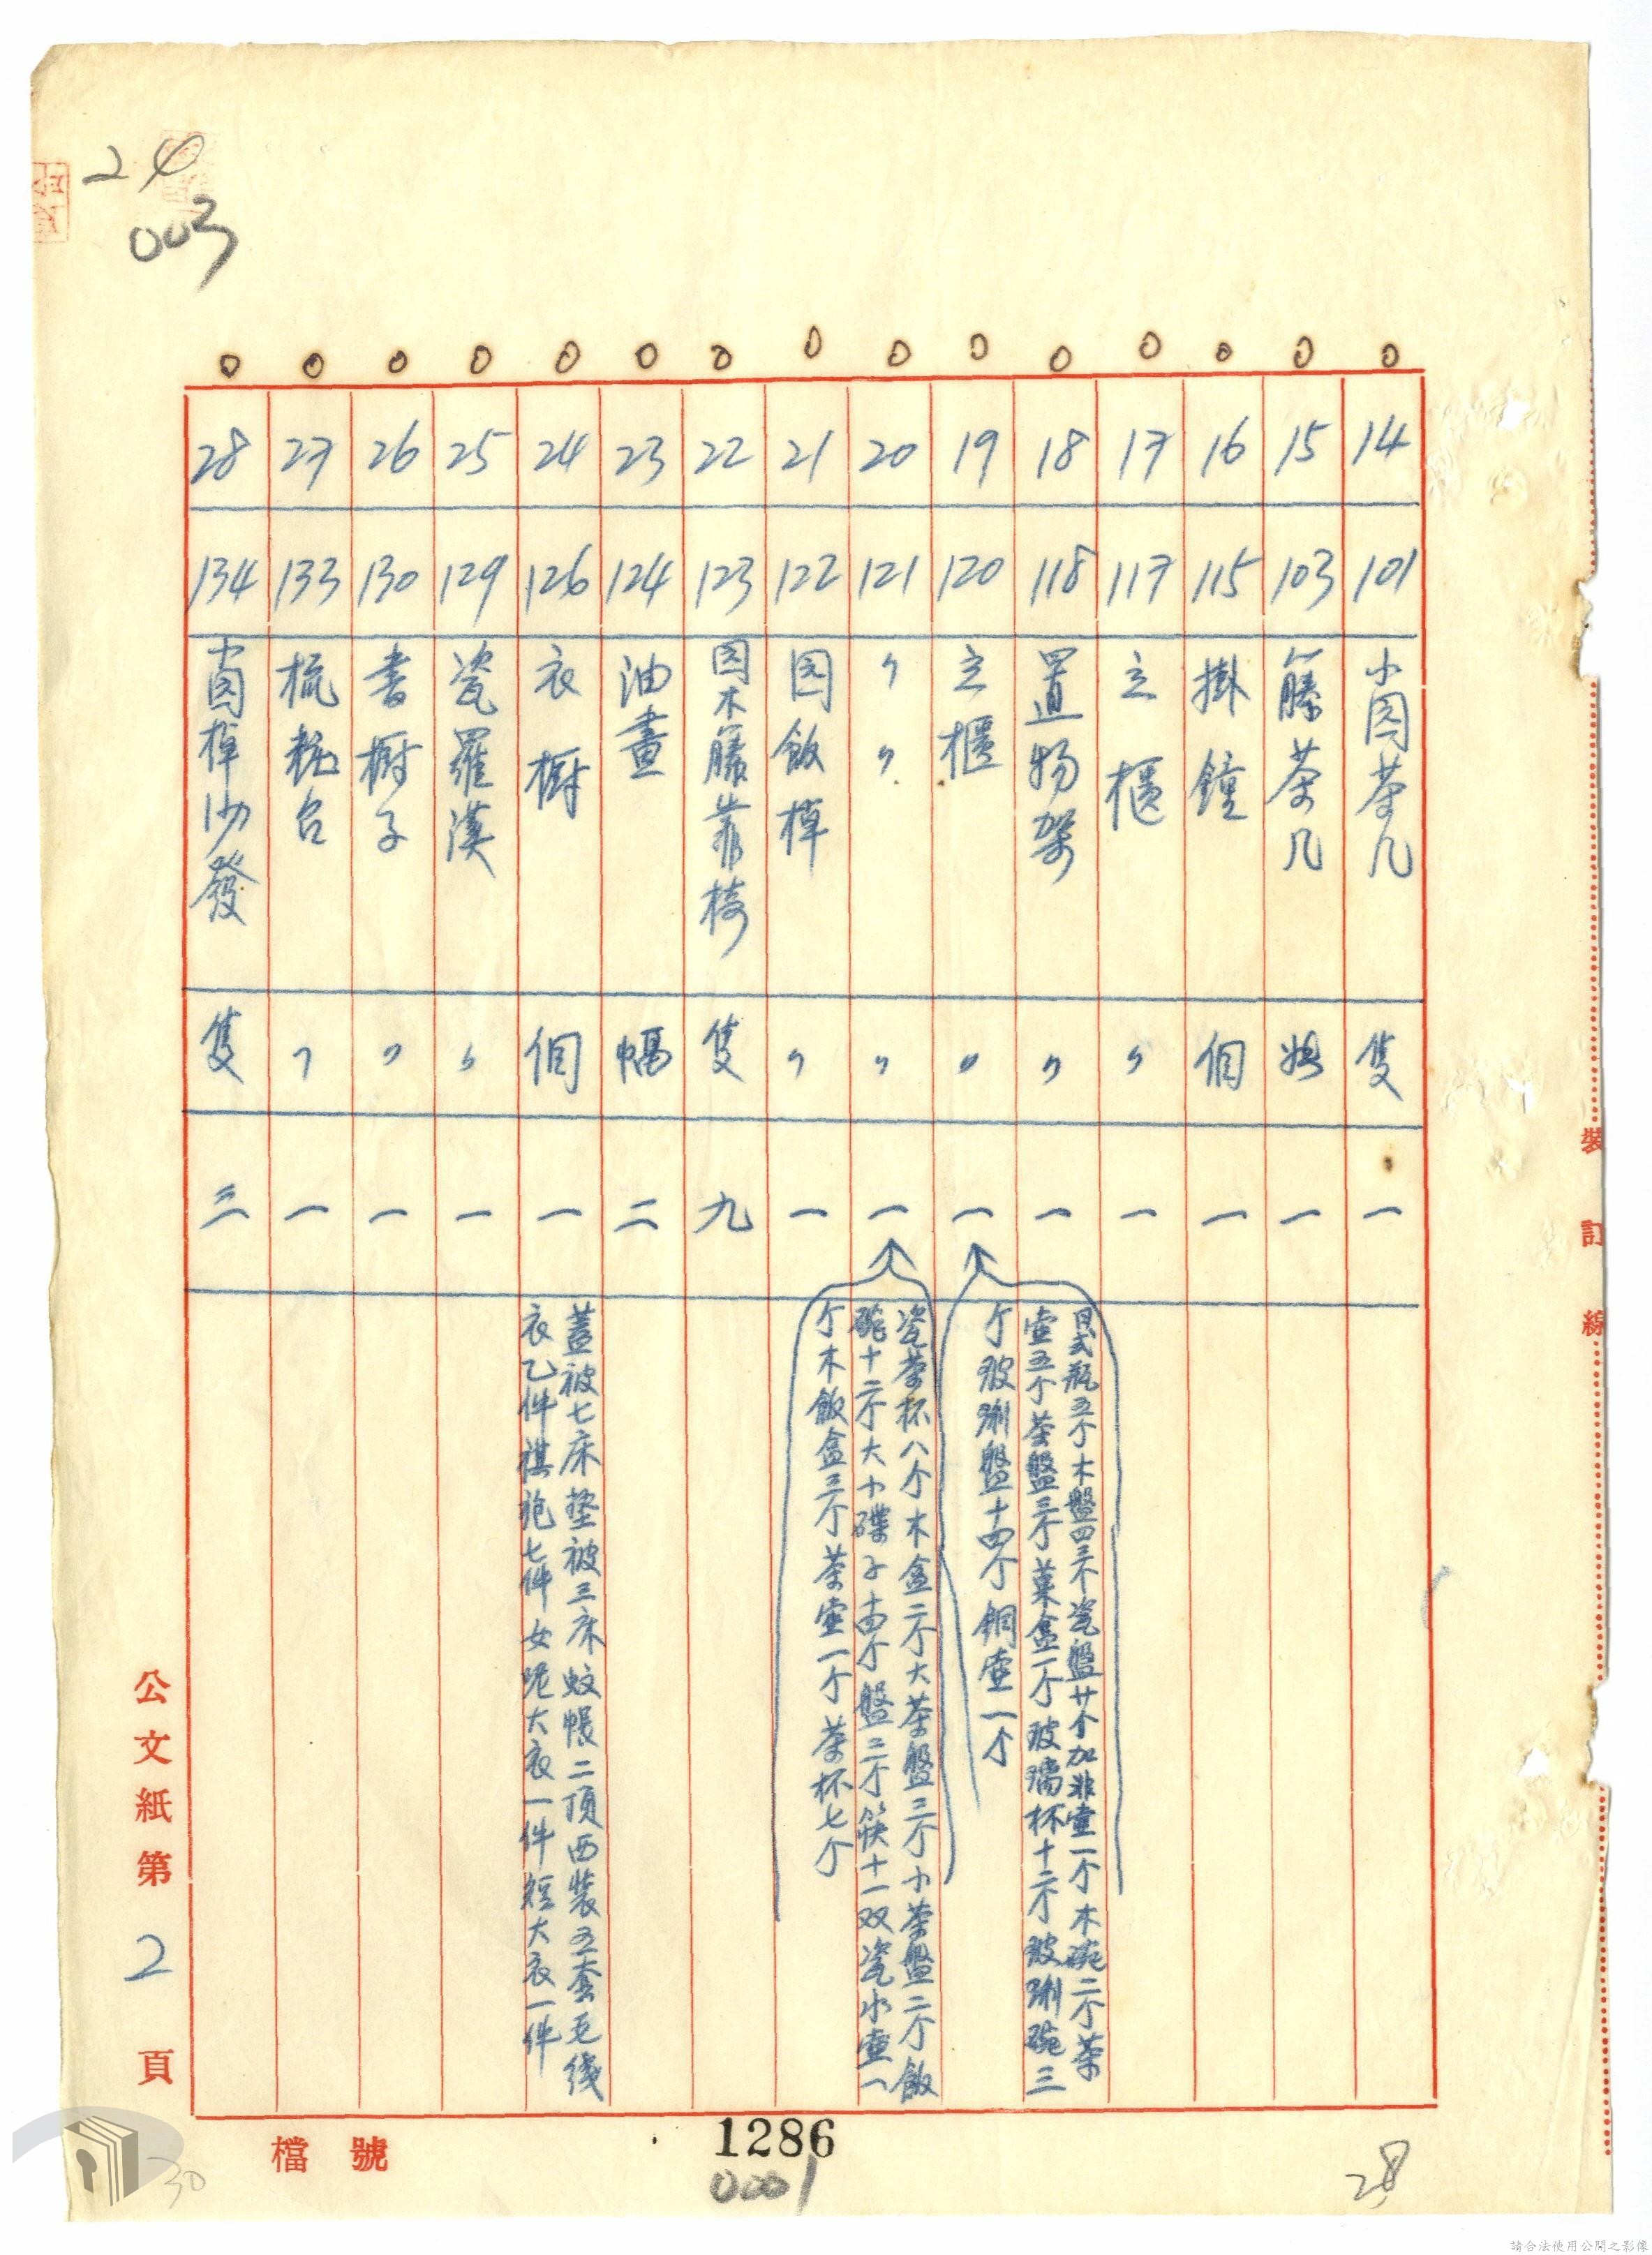 24
003
14 101 小园茶几 隻 一
15 103 籐茶几 一
16 115 掛鐘 個 一
17 117 立櫃 〃 一
18 118 置物架 〃 一
19 120 立櫃 〃 一
日式瓶五个木盤四三个瓷盤廿个加非壺一个木碗二个茶
壺五个茶盤三个菓盒一个玻璃杯十二个玻琍碗三
个玻琍盤十四个銅壺一个
20 121 〃 〃 〃 一
瓷茶杯八个木盒二个大茶盤三个小茶盤二个飯
碗十二个大小碟子十四个盤二个筷十一双瓷水壺一
个木飯盒三个茶壺一个茶杯七个
21 122 园飯棹 〃 一
22 123 园木籐靠椅 隻 九
23 124 油畫 幅 二
24 126 衣櫥 個 一
蓋被七床墊被三床蚊帳二頂西裝五套毛綫
衣乙件祺袍七件女呢大衣一件短大衣一件
25 129 瓷羅漢 〃 一
26 130 書櫥子 〃 一
27 133 梳粧台 〃 一
28 134 小园棹沙發 隻 三
裝訂線
公文紙第2頁
檔號
1286
0001
30
28
請合法使用公開之影像